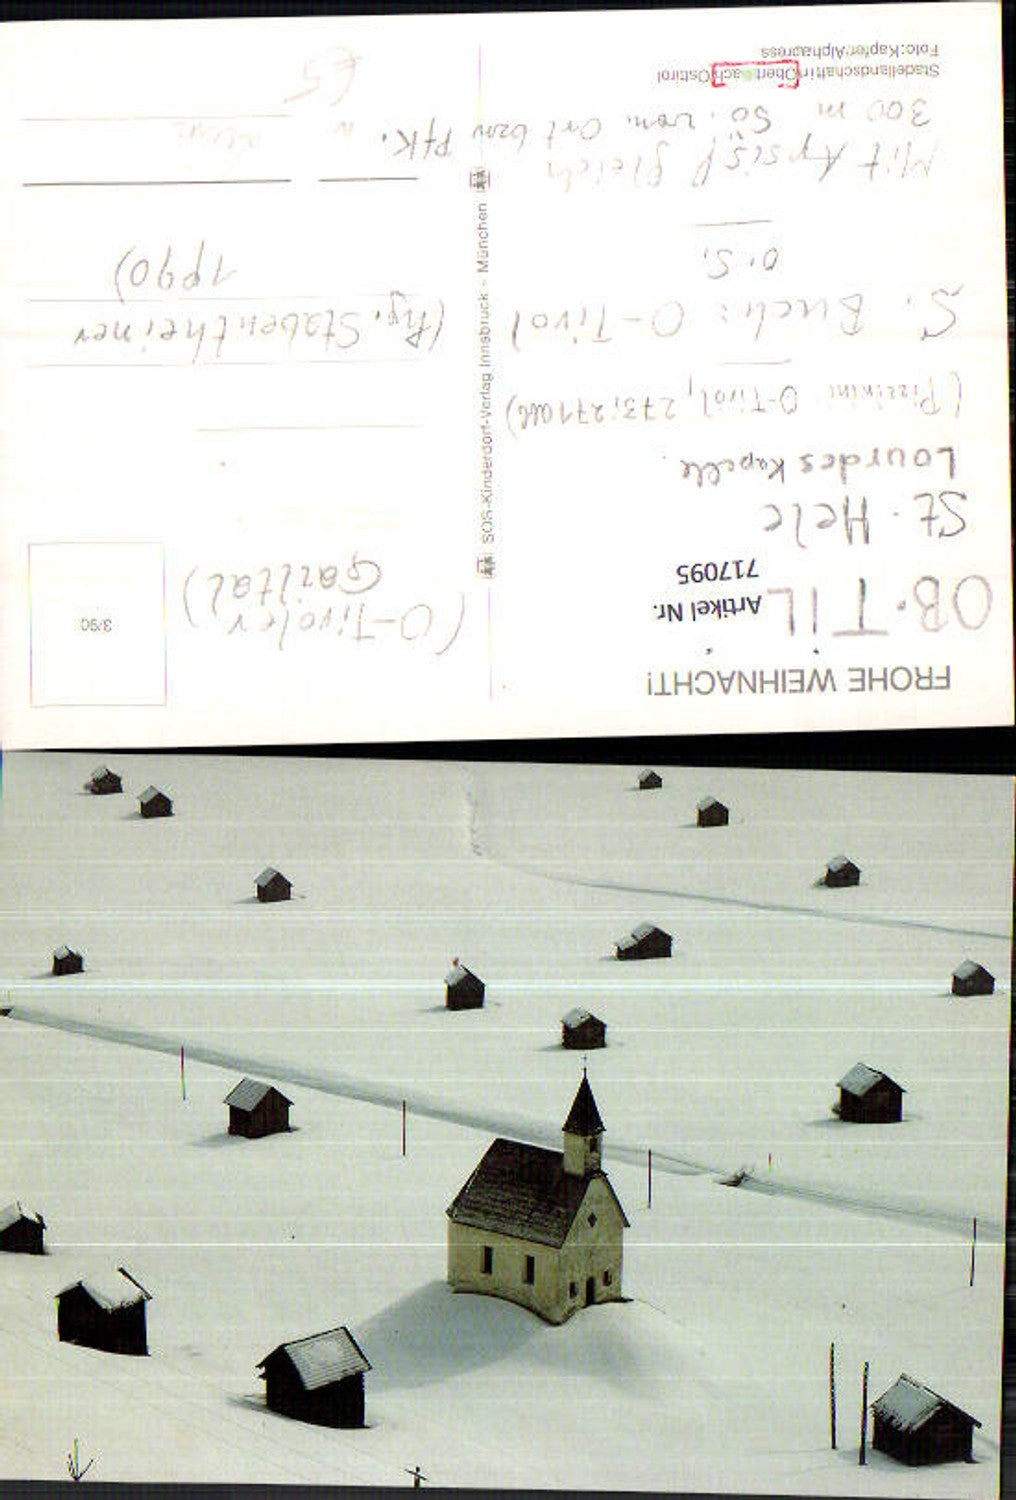 FROHE WEIHNACHT!
Artikel Nr.
717095
OB. TIL
St. Hele
Lourdes Kapelle.
(Pizzinini O-Tirol, 273; 271 )
S. Buch: O-Tirol
o.S.
Mit Apsis! gleich
300 m SO. vom Ort bzw Pfk.
Stadellandschaft in Obertilliach/Osttirol
Foto: Kapfer/Alphapress
SOS-Kinderdorf-Verlag Innsbruck - München
3/90
(O-Tiroler
Gailtal)
(Hg. Stabentheiner
1990)
€5